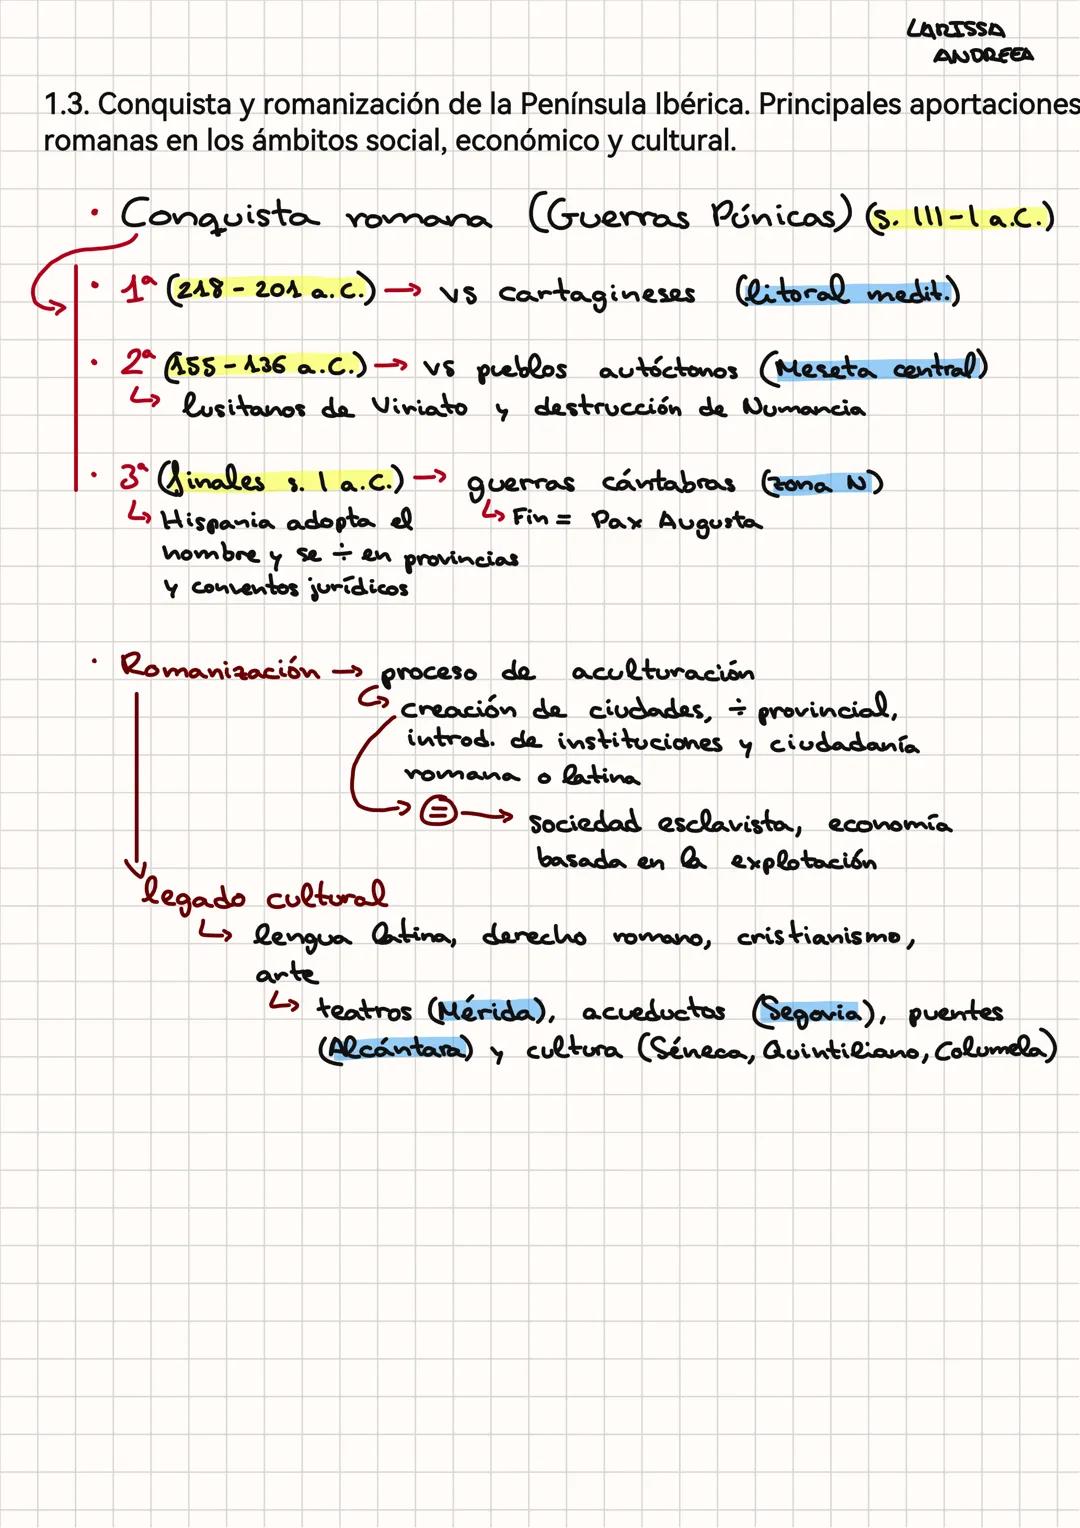 LARISSA
ANDREEA
1.3. Conquista y romanización de la Península Ibérica. Principales aportaciones
romanas en los ámbitos social, económico y cultural.
· Conquista romana (Guerras Púnicas) (s. III-I a.C.)
· 1ª (218 - 201 a.C.) → vs cartagineses (litoral medit.)
· 2ª (155 - 136 a.C.) → vs pueblos autóctonos (Meseta central)
↳ lusitanos de Viriato y destrucción de Numancia
· 3ª (finales s. I a.C.) → guerras cántabras (zona N)
↳ Hispania adopta el ↳ Fin = Pax Augusta
nombre y se ÷ en provincias
y conventos jurídicos
· Romanización → proceso de aculturación
↳ creación de ciudades, ÷ provincial,
introd. de instituciones y ciudadanía
romana o latina
→ = → sociedad esclavista, economía
basada en la explotación
legado cultural
↳ lengua latina, derecho romano, cristianismo,
arte
↳ teatros (Mérida), acueductos (Segovia), puentes
(Alcántara) y cultura (Séneca, Quintiliano, Columela)